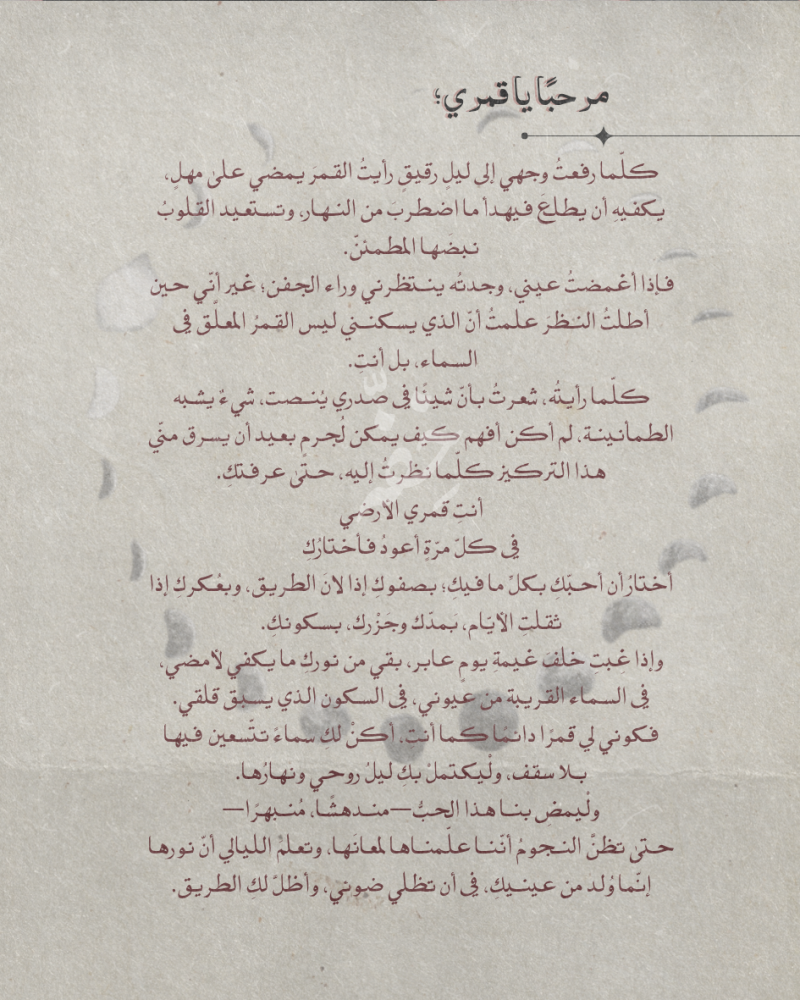 مرحبًا يا قمري؛
كلّما رفعتُ وجهي إلى ليلٍ رقيقٍ رأيتُ القمرَ يمضي على مهلٍ،
يكفيهِ أن يطلعَ فيهدأ ما اضطربَ من النهار، وتستعيد القلوبُ
نبضها المطمئنّ.
فإذا أغمضتُ عيني، وجدتُه ينتظرني وراء الجفن؛ غير أنّي حين
أطلتُ النظرَ علمتُ أنّ الذي يسكنني ليس القمرُ المعلّق في
السماء، بل أنتِ.
كلّما رأيتُه، شعرتُ بأنّ شيئًا في صدري يُنصت، شيءٌ يشبه
الطمأنينة، لم أكن أفهم كيف يمكن لجُرمٍ بعيد أن يسرق منّي
هذا التركيز كلّما نظرتُ إليه، حتّى عرفتكِ.
أنتِ قمري الأرضي
في كلّ مرّةٍ أعودُ فأختارُك
أختارُ أن أحبّك بكلّ ما فيك؛ بصفوكِ إذا لانَ الطريق، وبعُكركِ إذا
ثقلت الأيّام، بَمدّك وجَزْرك، بسكونكِ.
وإذا غبتِ خلفَ غيمةِ يومٍ عابر، بقي من نورك ما يكفي لأمضي،
في السماء القريبة من عيوني، في السكون الذي يسبق قلقي.
فكوني لي قمرًا دائمًا كما أنتِ، أكنْ لك سماءً تتّسعين فيها
بلا سقف، ولْيكتملْ بكِ ليلُ روحي ونهارُها.
ولْيمضِ بنا هذا الحبُّ—مندهشًا، مُنبهرًا—
حتّى تظنّ النجومُ أنّنا علّمناها لمعانَها، وتعلمَ الليالي أنّ نورها
إنّما وُلد من عينيكِ، في أن تظلي ضوئي، وأظلّ لكِ الطريق.